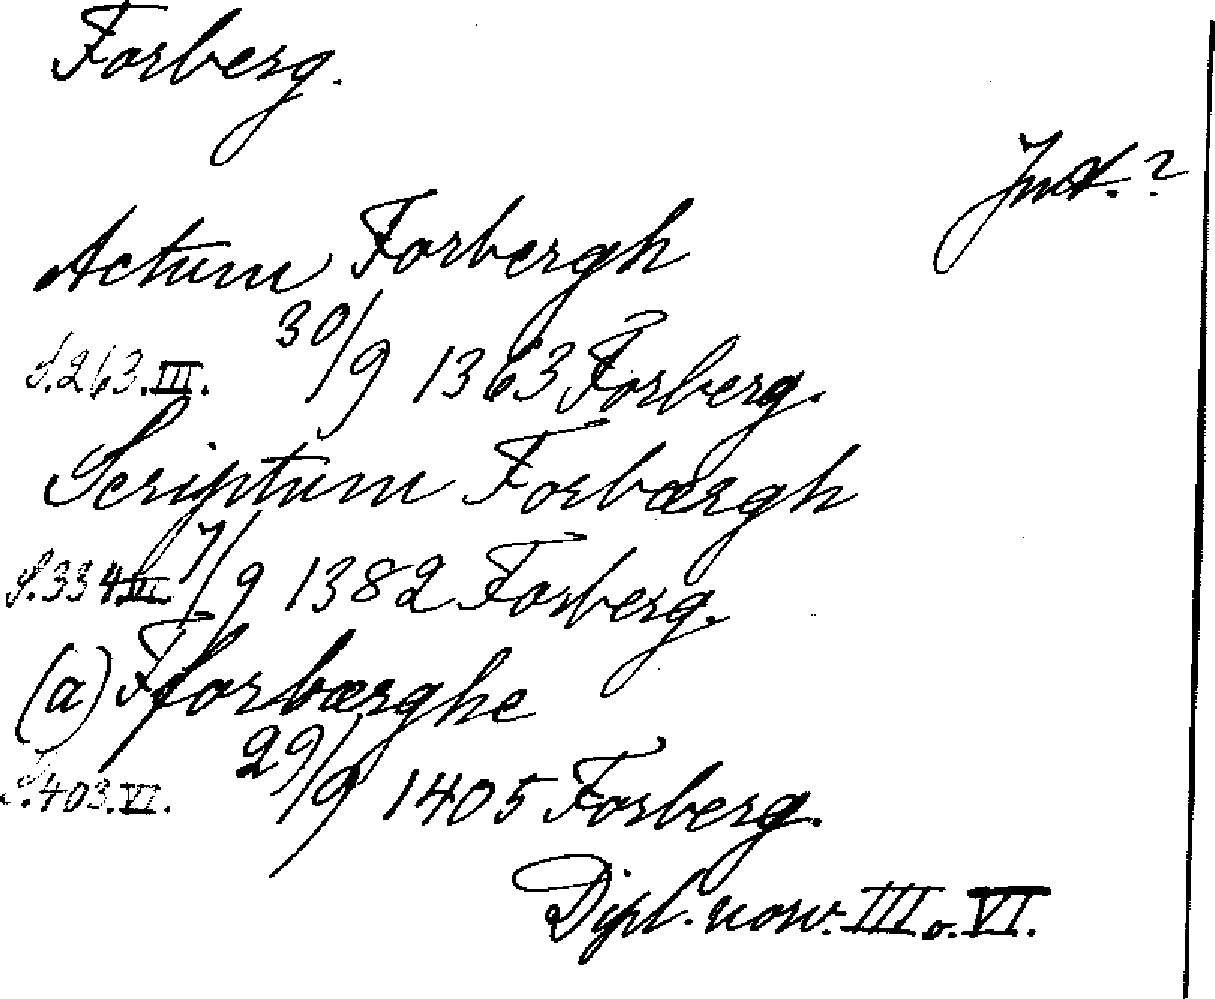 Forberg.
Jmt.?
Actum Forbergh
S.263.III. 30/9 1363 Forberg.
Scriptum Forbærgh
S.334.III. 7/9 1382 Forberg.
(a) Fforbærghe
S.403.VI. 29/9 1405 Forberg.
Dipl. norv. III o. VI.